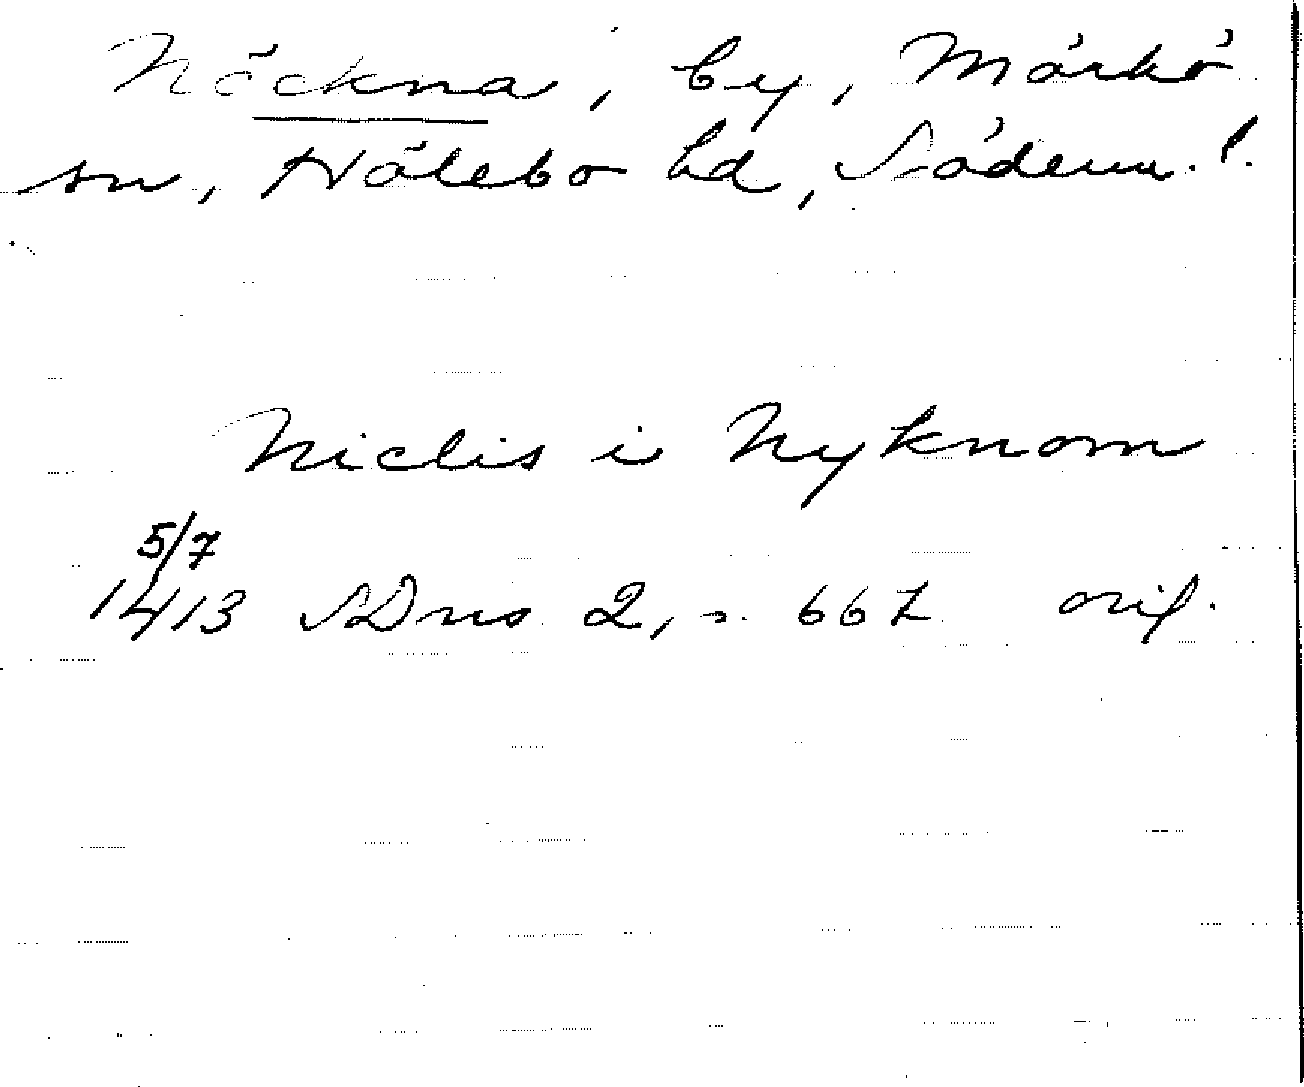 Näckna, by, Mörkö
sn, Hölebo hd, Söderm. l.
Niclis i Nyknom
5/7
1413 SDns 2, s. 667 orig.